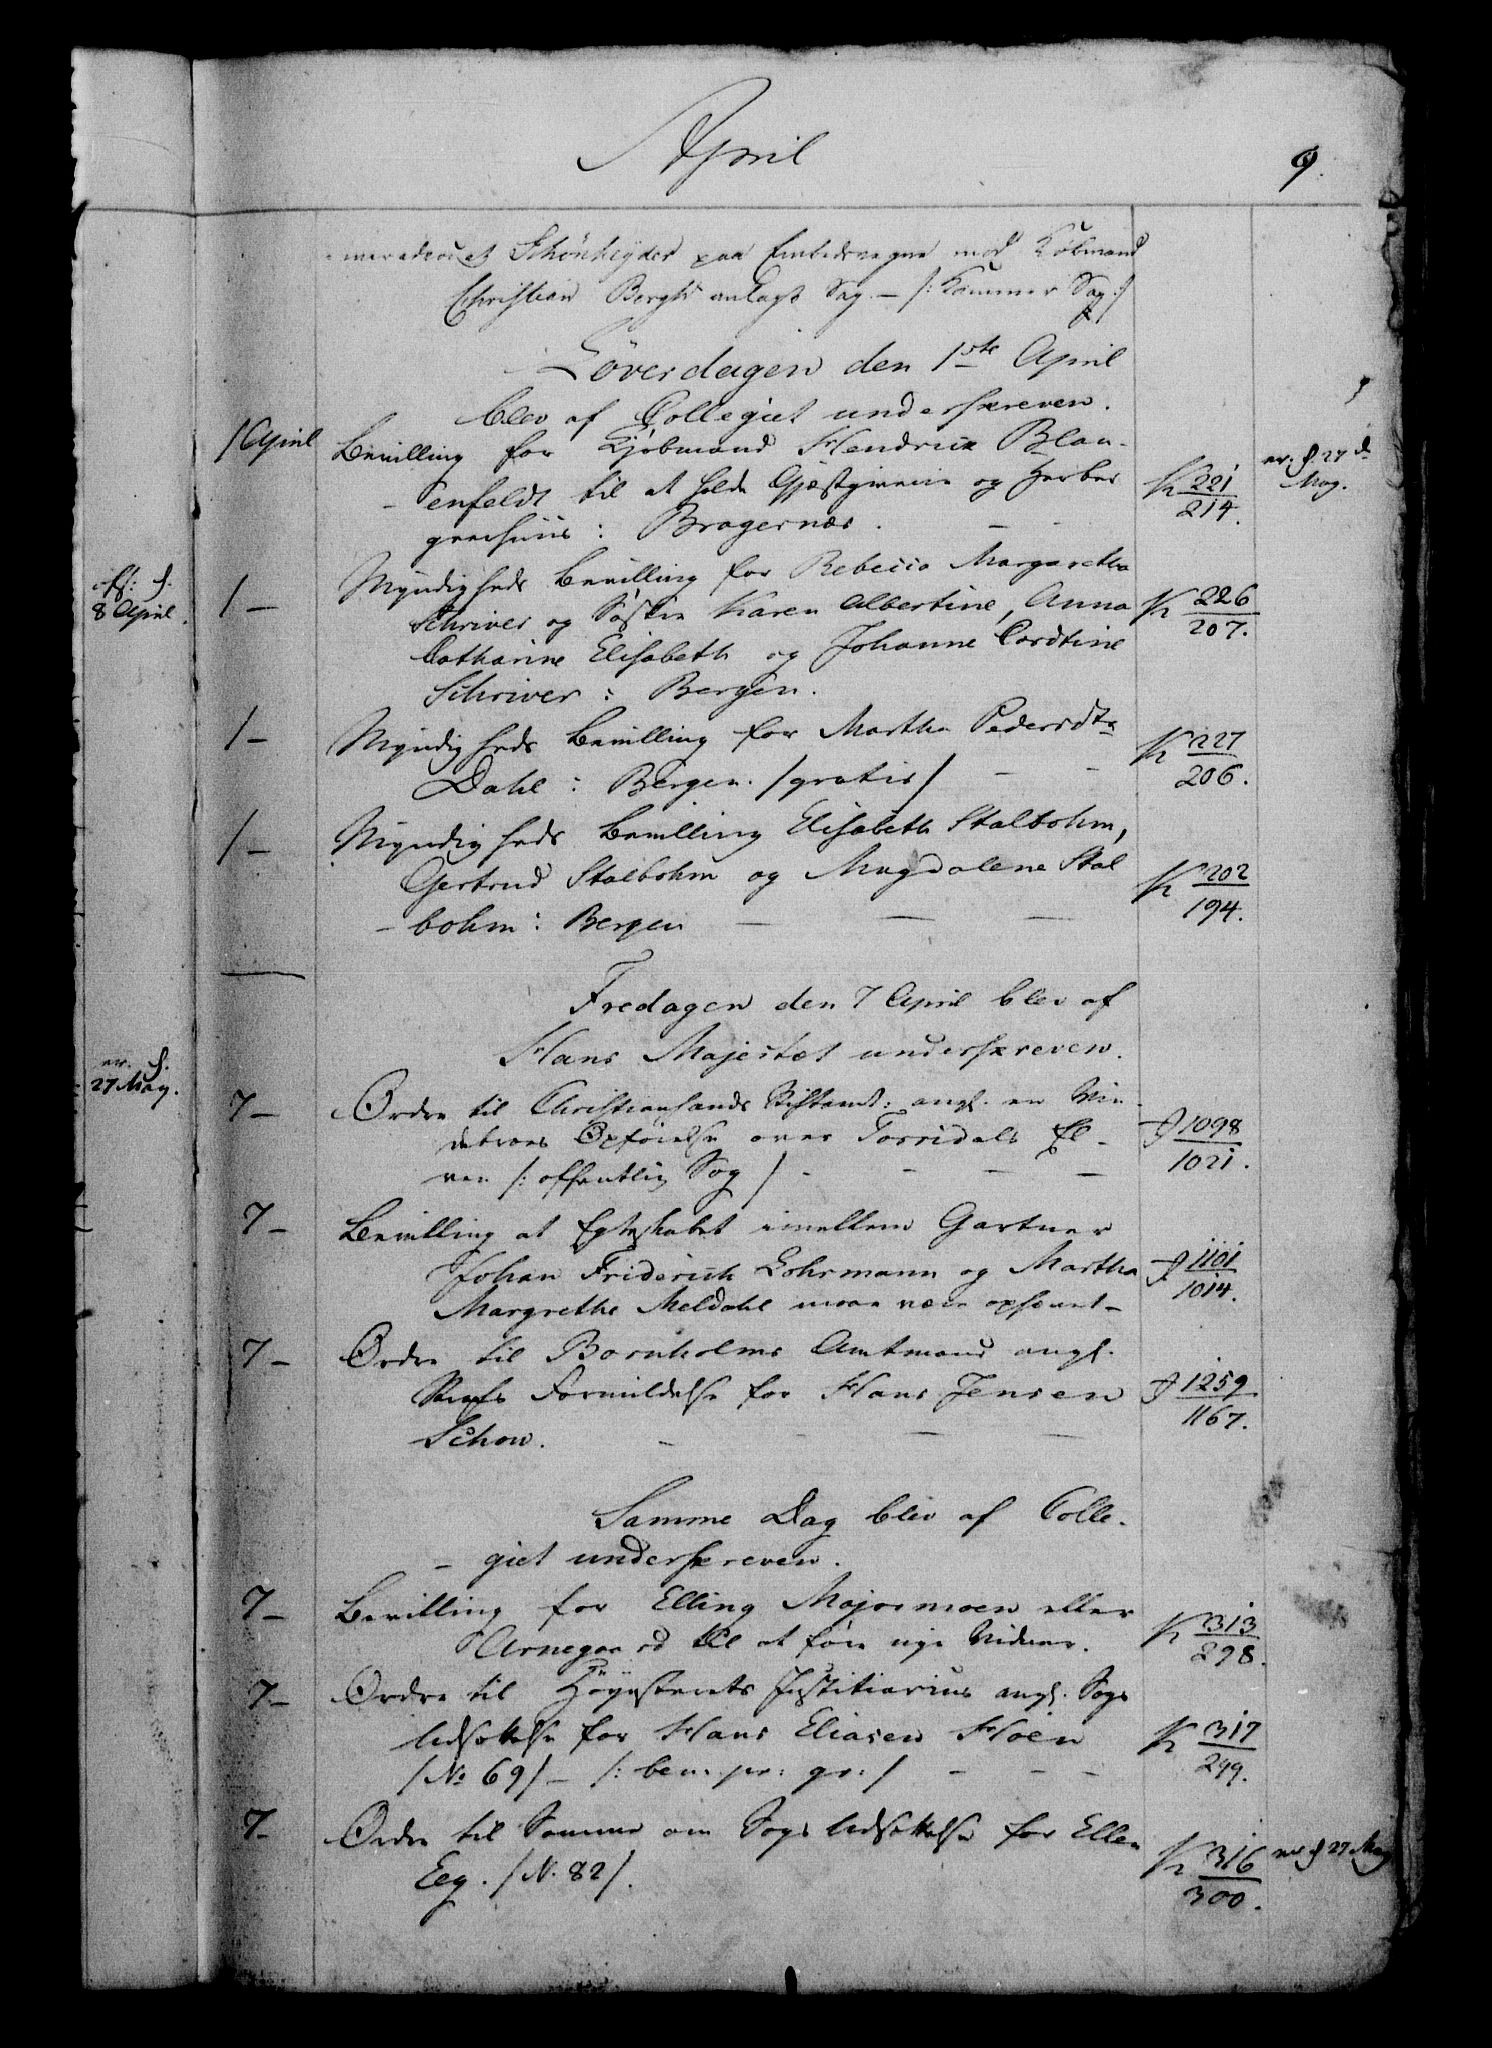 April
9.
Schönheyder paa Embedsvegne mod Købmand
Christian Bergh anlagte Sag. — /: Kammer Sag :/
Löverdagen den 1ste April
blev af Collegiet underskreven.
1 April Bevilling for Kjøbmand Hendrich Blan-
enfeldt til at holde Gjæstgiverie og Herber
-greehuus i Bragernæs. K 221/214. 27de May.
1 — Myndigheds Bevilling for Rebecca Margaretha
Schriver og Søstre Karen Albertine, Anna K 226/207.
Catharine Elisabeth og Johanne Cordtine
Schriver i Bergen.
1 — Myndigheds Bevilling for Martha Pedersdtr
Dahl i Bergen. /gratis/ K 227/206.
1 — Myndigheds Bevilling Elisabeth Stalbohm,
Gertrud Stalbohm og Magdalene Stal
-bohm i Bergen K 202/194.
Fredagen den 7 April blev af
Hans Majestæt underskreven.
7 — Ordre til Christiansands Stiftamt: angl. en Vin-
debroes Opførelse over Torridals El-
ven /: offentlig Sag / 1098/1021.
7 — Bevilling at Egteskabet imellem Gartner
Johan Friderich Lohrmann og Martha
Margrethe Meldahl maae være ophævet — 1101/1014.
7 — Ordre til Bornholms Amtmand angl.
Straffs Formildelse for Hans Jensen
Schow. 1259/1167.
Samme Dag blev af Colle-
-giet underskreven.
7 — Bevilling for Elling Majormoen eller
Arnegaard til at føre nye Vidner. K 313/298.
7 — Ordre til Höyesterets Justitiarius angl. Sags
Udsættelse for Hans Eliasen Hoen
/No 69/ — /: ben: pr: gr: / K 317/299.
7 — Ordre til Samme om Sags Udsættelse for Ellen
Eeg. /N. 82/. K 316/300. 27 May
8 April.
27 May.